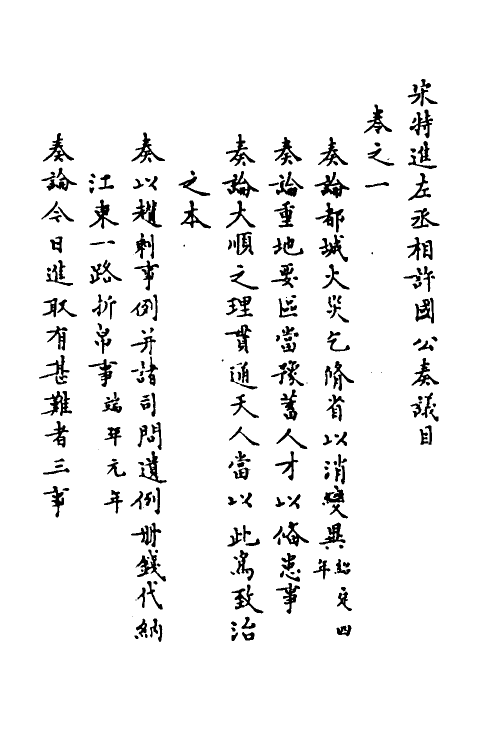 宋特進左丞相許國公奏議目
卷之一
奏論都城火災乞脩省以消變異紹定四年
奏論重地要區當豫蓄人才以俻患事
奏論大順之理貫通天人當以此爲致治
之本
奏以趲剰事例并諸司問遺例册錢代納
江東一路折帛事端平元年
奏論今日進取有甚難者三事